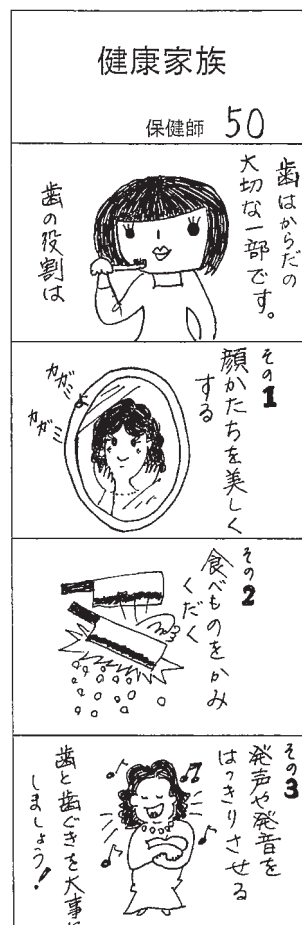 健康家族
保健師 50
歯はからだの
大切な一部です。
歯の役割は
その1
顔かたちを美しく
する
カガミ
カガミ
その2
食べものをかみ
くだく
その3
発声や発音を
はっきりさせる
歯と歯ぐきを大事に
しましょう!